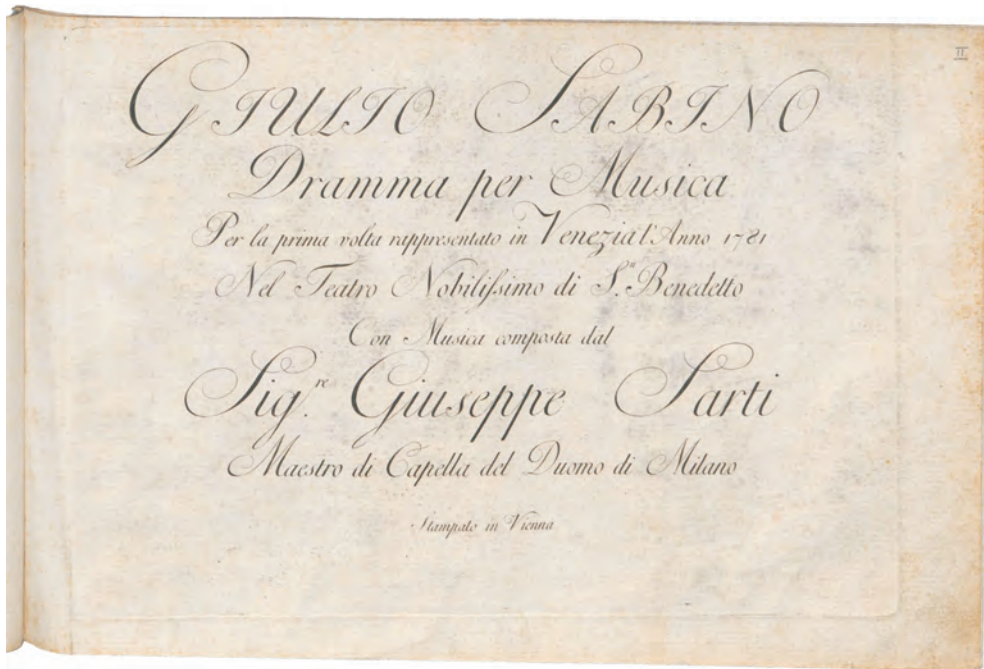 II
GIULIO SABINO
Dramma per Musica
Per la prima volta rappresentato in Venezia l'Anno 1781
Nel Teatro Nobilissimo di S.n Benedetto
Con Musica composta dal
Sig.re Giuseppe Sarti
Maestro di Capella del Duomo di Milano
Stampato in Vienna